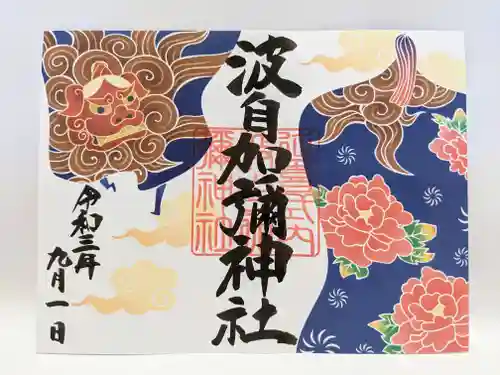 波自加彌神社
令和三年
九月一日